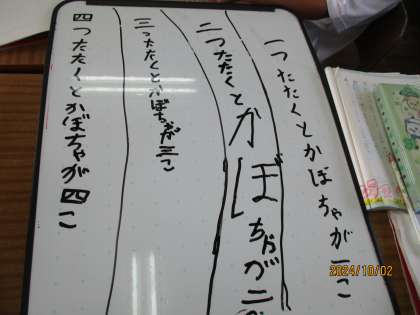 一つたたくとかぼちゃが一こ
二つたたくとかぼちゃが二
三つたたくとかぼちゃが三こ
四つたたくとかぼちゃが四こ
2024/10/02